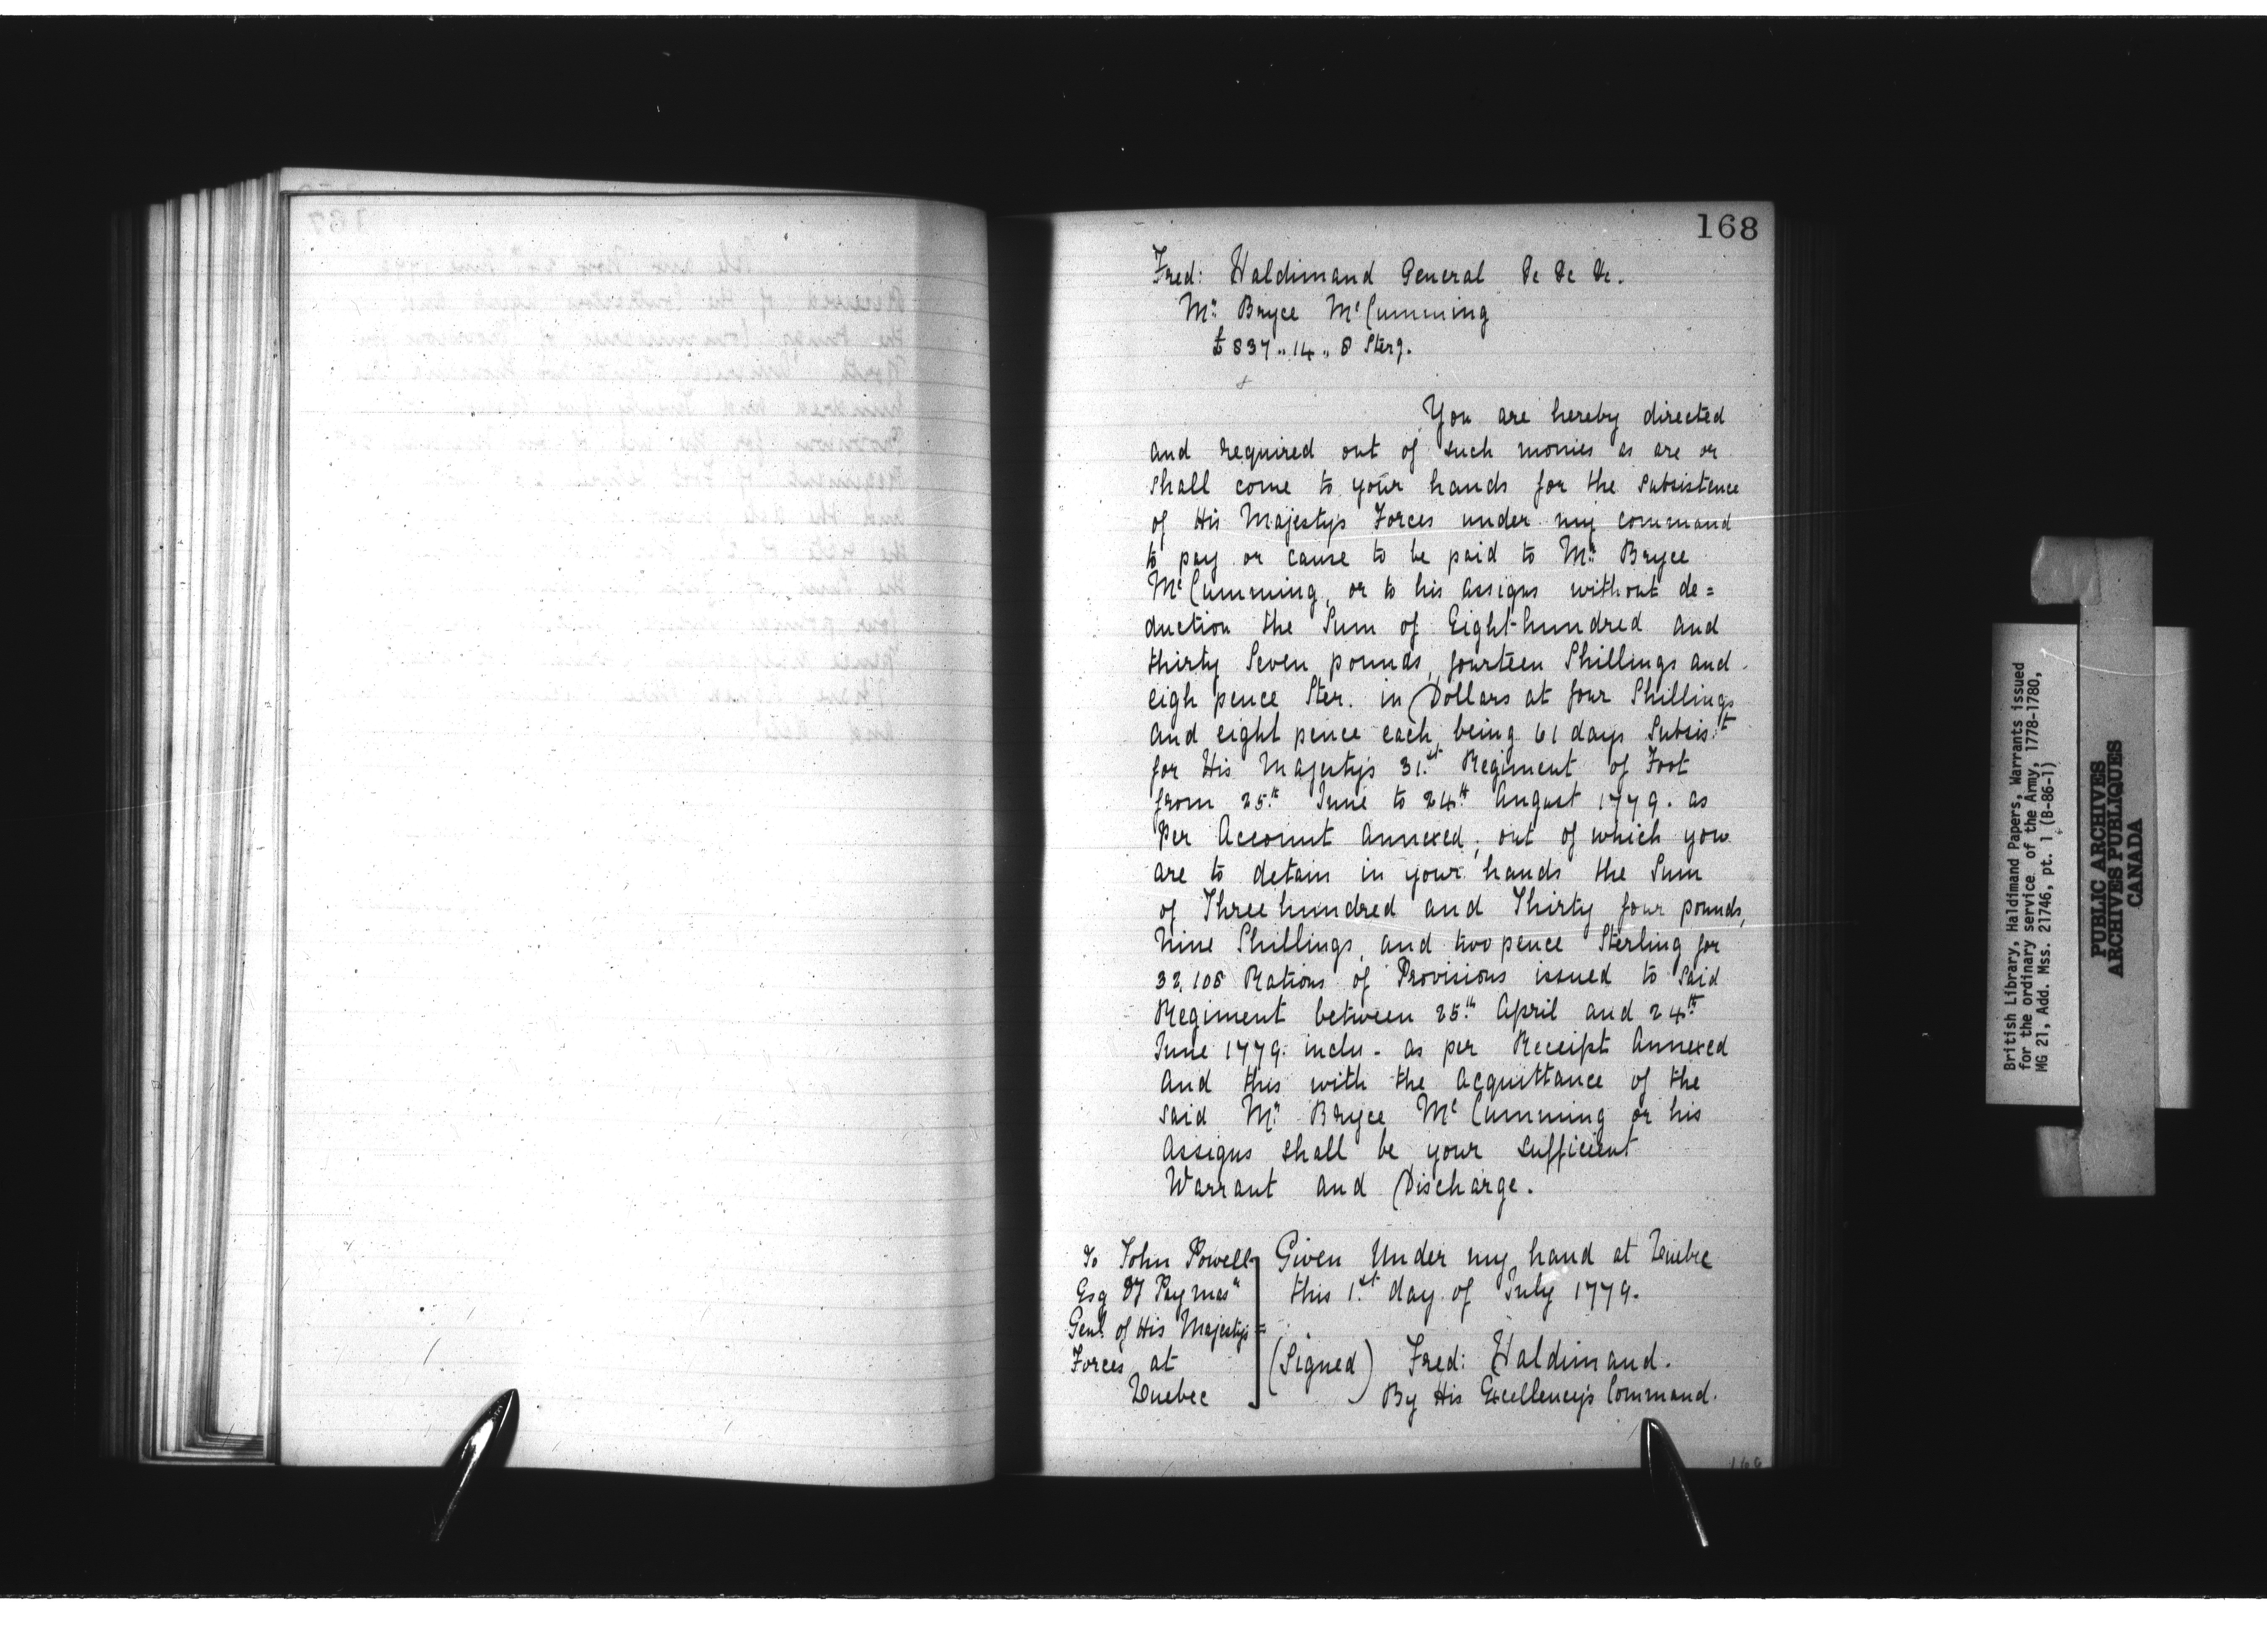 168
Fred: Haldimand General &c &c &c.
Mr. Bryce McCumming
£837 „ 14 „ 8 Sterg.
You are hereby directed
and required out of such monies as are or
shall come to your hands for the subsistence
of His Majestys Forces under my command
to pay or cause to be paid to Mr. Bryce
McCumming, or to his assigns without de=
duction the Sum of Eight-hundred and
thirty Seven pounds, fourteen Shillings and
eigh pence Ster. in Dollars at four Shillings
and eight pence each, being 61 days Subsist
for His Majesty's 31.st Regiment of Foot
from 25.th June to 24.th August 1779. as
Per Account annexed; out of which you
are to detain in your hands the Sum
of Three hundred and Thirty four pounds,
Nine Shillings, and two pence Sterling for
32,108 Rations of Provisions issued to said
Regiment between 25.th April and 24.th
June 1779. inclu - as per Receipt Annexed
and this with the acquittance of the
said Mr. Bryce McCumming or his
assigns shall be your sufficient
Warrant and Discharge.
To John Powell
Esq Dy Paymasr
Genl. of His Majestys=
Forces at
Quebec
Given Under my hand at Quebec
this 1.st day of July 1779.
(Signed) Fred: Haldimand.
By His Excellency's Command.
British Library, Haldimand Papers, Warrants issued
for the ordinary service of the Army, 1778-1780,
MG 21, Add. Mss. 21746, pt. 1 (B-86-1)
PUBLIC ARCHIVES
ARCHIVES PUBLIQUES
CANADA